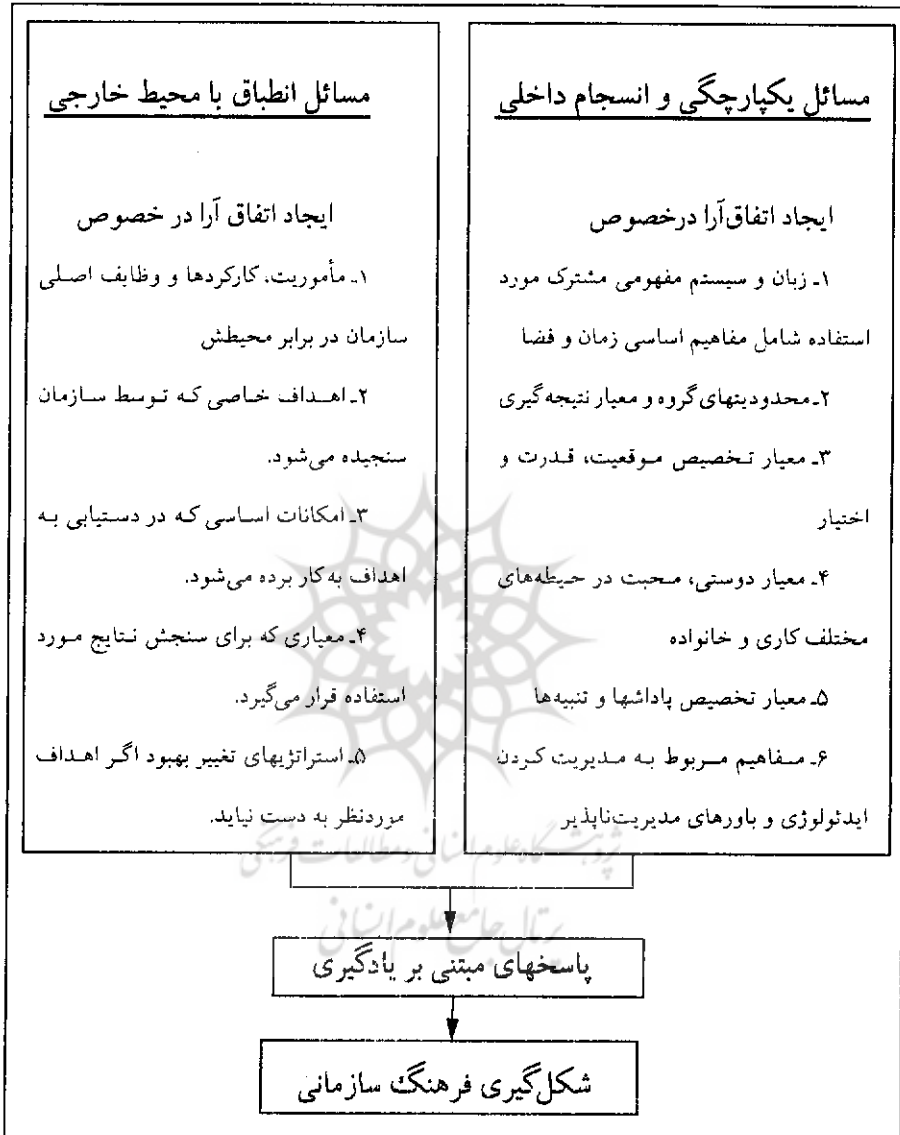 مسائل یکپارچگی و انسجام داخلی
ایجاد اتفاق‌آرا درخصوص
۱ـ زبان و سیستم مفهومی مشترک مورد
استفاده شامل مفاهیم اساسی زمان و فضا
۲ـ محدودیتهای گروه و معیار نتیجه‌گیری
۳ـ معیار تخصیص موقعیت، قدرت و
اختیار
۴ـ معیار دوستی، محبت در حیطه‌های
مختلف کاری و خانواده
۵ـ معیار تخصیص پاداشها و تنبیه‌ها
۶ـ مفاهیم مربوط به مدیریت کردن
ایدئولوژی و باورهای مدیریت‌ناپذیر
مسائل انطباق با محیط خارجی
ایجاد اتفاق آرا در خصوص
۱ـ مأموریت، کارکردها و وظایف اصلی
سازمان در برابر محیطش
۲ـ اهداف خاصی که توسط سازمان
سنجیده می‌شود.
۳ـ امکانات اساسی که در دستیابی به
اهداف به‌کار برده می‌شود.
۴ـ معیاری که برای سنجش نتایج مورد
استفاده قرار می‌گیرد.
۵ـ استراتژیهای تغییر بهبود اگر اهداف
موردنظر به دست نیاید.
پژوهشگاه علوم انسانی و مطالعات فرهنگی
پرتال جامع علوم انسانی
پاسخهای مبتنی بر یادگیری
شکل‌گیری فرهنگ سازمانی